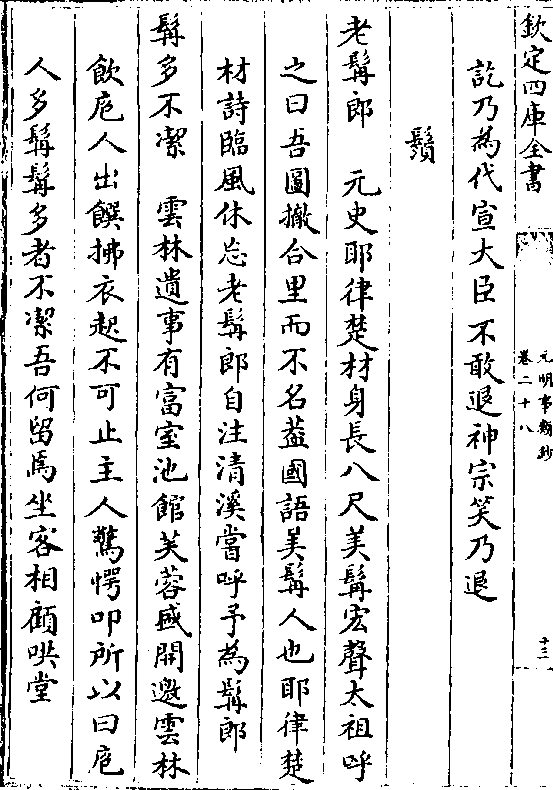 欽定四庫全書
元明事類鈔
卷二十八
十三
訖乃為代宣大臣不敢退神宗笑乃退
鬚
老髯郎　元史耶律楚材身長八尺美髯宏聲太祖呼
之曰吾圖撤合里而不名蓋國語美髯人也耶律楚
材詩臨風休忘老髯郎自注清溪嘗呼予為髯郎
髯多不潔　雲林遺事有富室池館芙蓉盛開邀雲林
飲庖人出饌拂衣起不可止主人驚愕叩所以曰庖
人多髯髯多者不潔吾何留焉坐客相顧哄堂